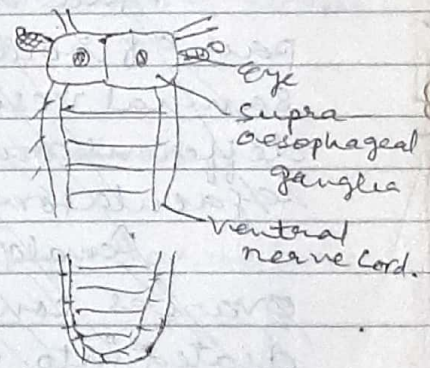 Eye
Supra
oesophageal
ganglia
Ventral
nerve cord.